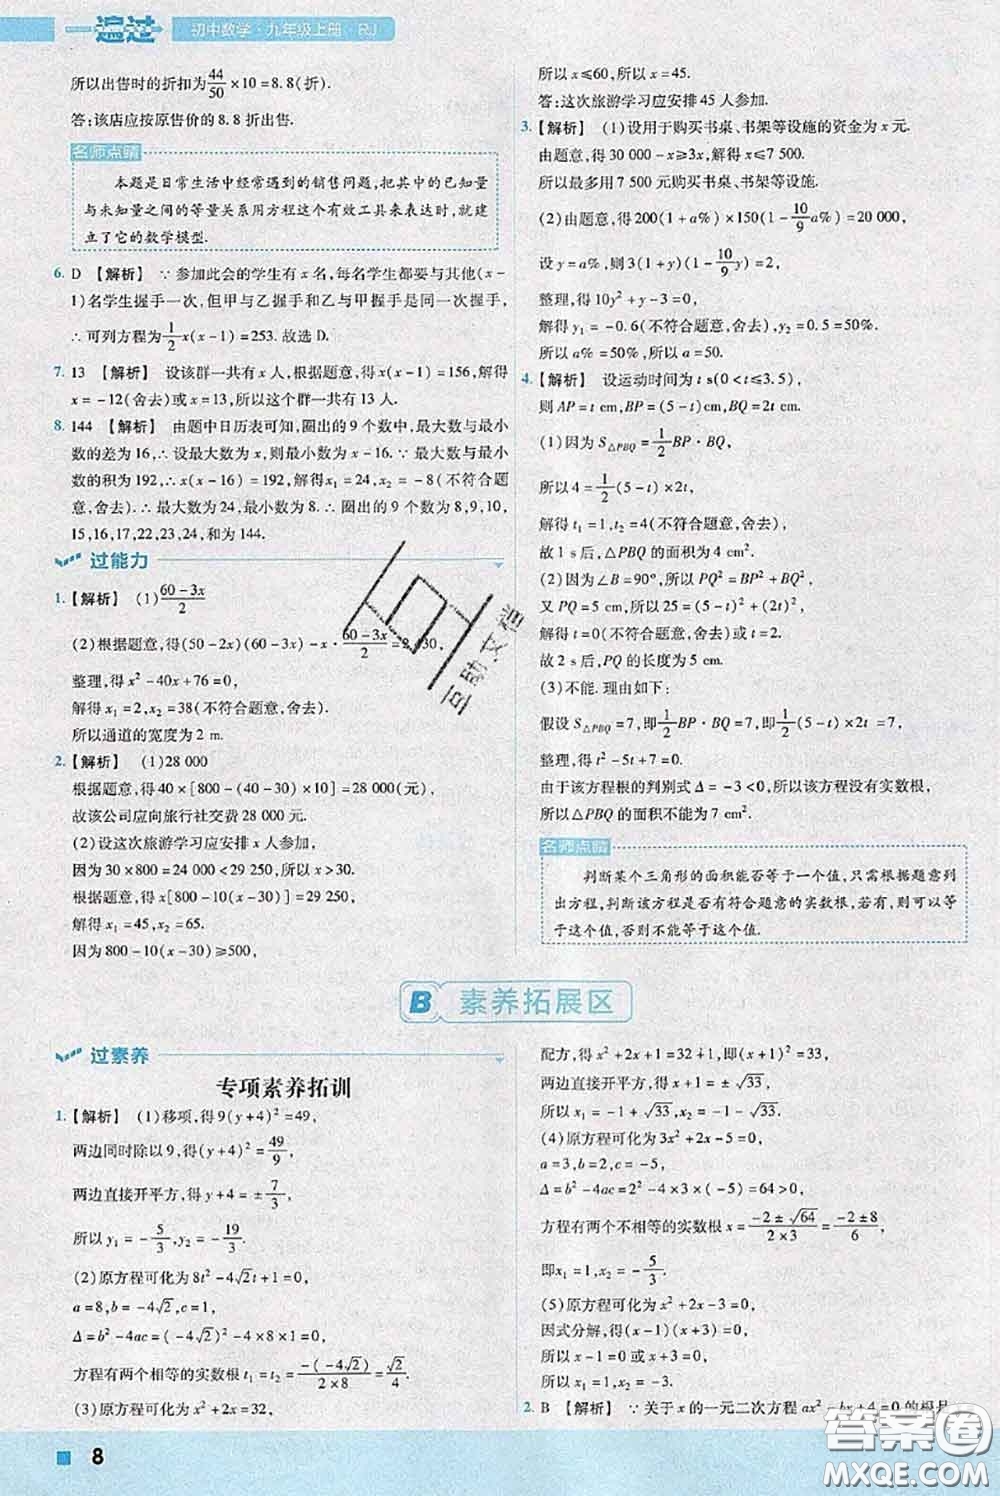 一遍过 初中数学·九年级上册 RJ
所以出售时的折扣为44/50×10=8.8(折).
答:该店应按原售价的8.8折出售.
名师点睛
本题是日常生活中经常遇到的销售问题,把其中的已知量
与未知量之间的等量关系用方程这个有效工具来表达时,就建
立了它的数学模型.
6. D 【解析】 ∵参加此会的学生有x名,每名学生都要与其他(x-
1)名学生握手一次,但甲与乙握手和乙与甲握手是同一次握手,
∴可列方程为1/2x(x-1)=253.故选D.
7. 13 【解析】 设该群一共有x人,根据题意,得x(x-1)=156,解得
x=-12(舍去)或x=13,所以这个群一共有13人.
8. 144 【解析】 由题中日历表可知,圈出的9个数中,最大数与最小
数的差为16,∴设最大数为x,则最小数为x-16.∵最大数与最小
数的积为192,∴x(x-16)=192,解得x₁=24,x₂=-8(不符合题
意,舍去).∴最大数为24,最小数为8.∴圈出的9个数为8,9,10,
15,16,17,22,23,24,和为144.
过能力
1. 【解析】 (1)(60-3x)/2
(2)根据题意,得(50-2x)(60-3x)-x·(60-3x)/2=2 430,
整理,得x²-40x+76=0,
解得x₁=2,x₂=38(不符合题意,舍去).
所以通道的宽度为2 m.
2. 【解析】 (1)28 000
根据题意,得40×[800-(40-30)×10]=28 000(元),
故该公司应向旅行社交费28 000元.
(2)设这次旅游学习应安排x人参加,
因为30×800=24 000<29 250,所以x>30.
根据题意,得x[800-10(x-30)]=29 250,
解得x₁=45,x₂=65.
因为800-10(x-30)≥500,
所以x≤60,所以x=45.
答:这次旅游学习应安排45人参加.
3. 【解析】 (1)设用于购买书桌、书架等设施的资金为x元.
由题意,得30 000-x≥3x,解得x≤7 500.
所以最多用7 500元购买书桌、书架等设施.
(2)由题意,得200(1+a%)×150(1-10/9a%)=20 000,
设y=a%,则3(1+y)(1-10/9y)=2,
整理,得10y²+y-3=0,
解得y₁=-0.6(不符合题意,舍去),y₂=0.5=50%.
所以a%=50%,所以a=50.
4. 【解析】 设运动时间为t s(0<t≤3.5),
则AP=t cm,BP=(5-t)cm,BQ=2t cm.
(1)因为S△PBQ=1/2BP·BQ,
所以4=1/2(5-t)×2t,
解得t₁=1,t₂=4(不符合题意,舍去),
故1 s后,△PBQ的面积为4 cm².
(2)因为∠B=90°,所以PQ²=BP²+BQ²,
又PQ=5 cm,所以25=(5-t)²+(2t)²,
解得t=0(不符合题意,舍去)或t=2.
故2 s后,PQ的长度为5 cm.
(3)不能.理由如下:
假设S△PBQ=7,即1/2BP·BQ=7,即1/2(5-t)×2t=7,
整理,得t²-5t+7=0.
由于该方程根的判别式Δ=-3<0,所以该方程没有实数根,
所以△PBQ的面积不能为7 cm².
名师点睛
判断某个三角形的面积能否等于一个值,只需根据题意列
出方程,判断该方程是否有符合题意的实数根,若有,则可以等
于这个值,否则不能等于这个值.
B 素养拓展区
过素养
专项素养拓训
1. 【解析】 (1)移项,得9(y+4)²=49,
两边同时除以9,得(y+4)²=49/9,
两边直接开平方,得y+4=±7/3,
所以y₁=-5/3,y₂=-19/3.
(2)原方程可化为8t²-4√2t+1=0,
a=8,b=-4√2,c=1,
Δ=b²-4ac=(-4√2)²-4×8×1=0,
方程有两个相等的实数根t₁=t₂=-(-4√2)/(2×8)=√2/4.
(3)原方程可化为x²+2x=32,
配方,得x²+2x+1=32+1,即(x+1)²=33,
两边直接开平方,得x+1=±√33,
所以x₁=-1+√33,x₂=-1-√33.
(4)原方程可化为3x²+2x-5=0,
a=3,b=2,c=-5,
Δ=b²-4ac=2²-4×3×(-5)=64>0,
方程有两个不相等的实数根x=(-2±√64)/(2×3)=(-2±8)/6,
即x₁=1,x₂=-5/3.
(5)原方程可化为x²+2x-3=0,
因式分解,得(x-1)(x+3)=0,
所以x-1=0或x+3=0,
所以x₁=1,x₂=-3.
2. B 【解析】 ∵关于x的一元二次方程ax²-bx+4=0的根是
8
互助文档
答案圈
MXQE.COM